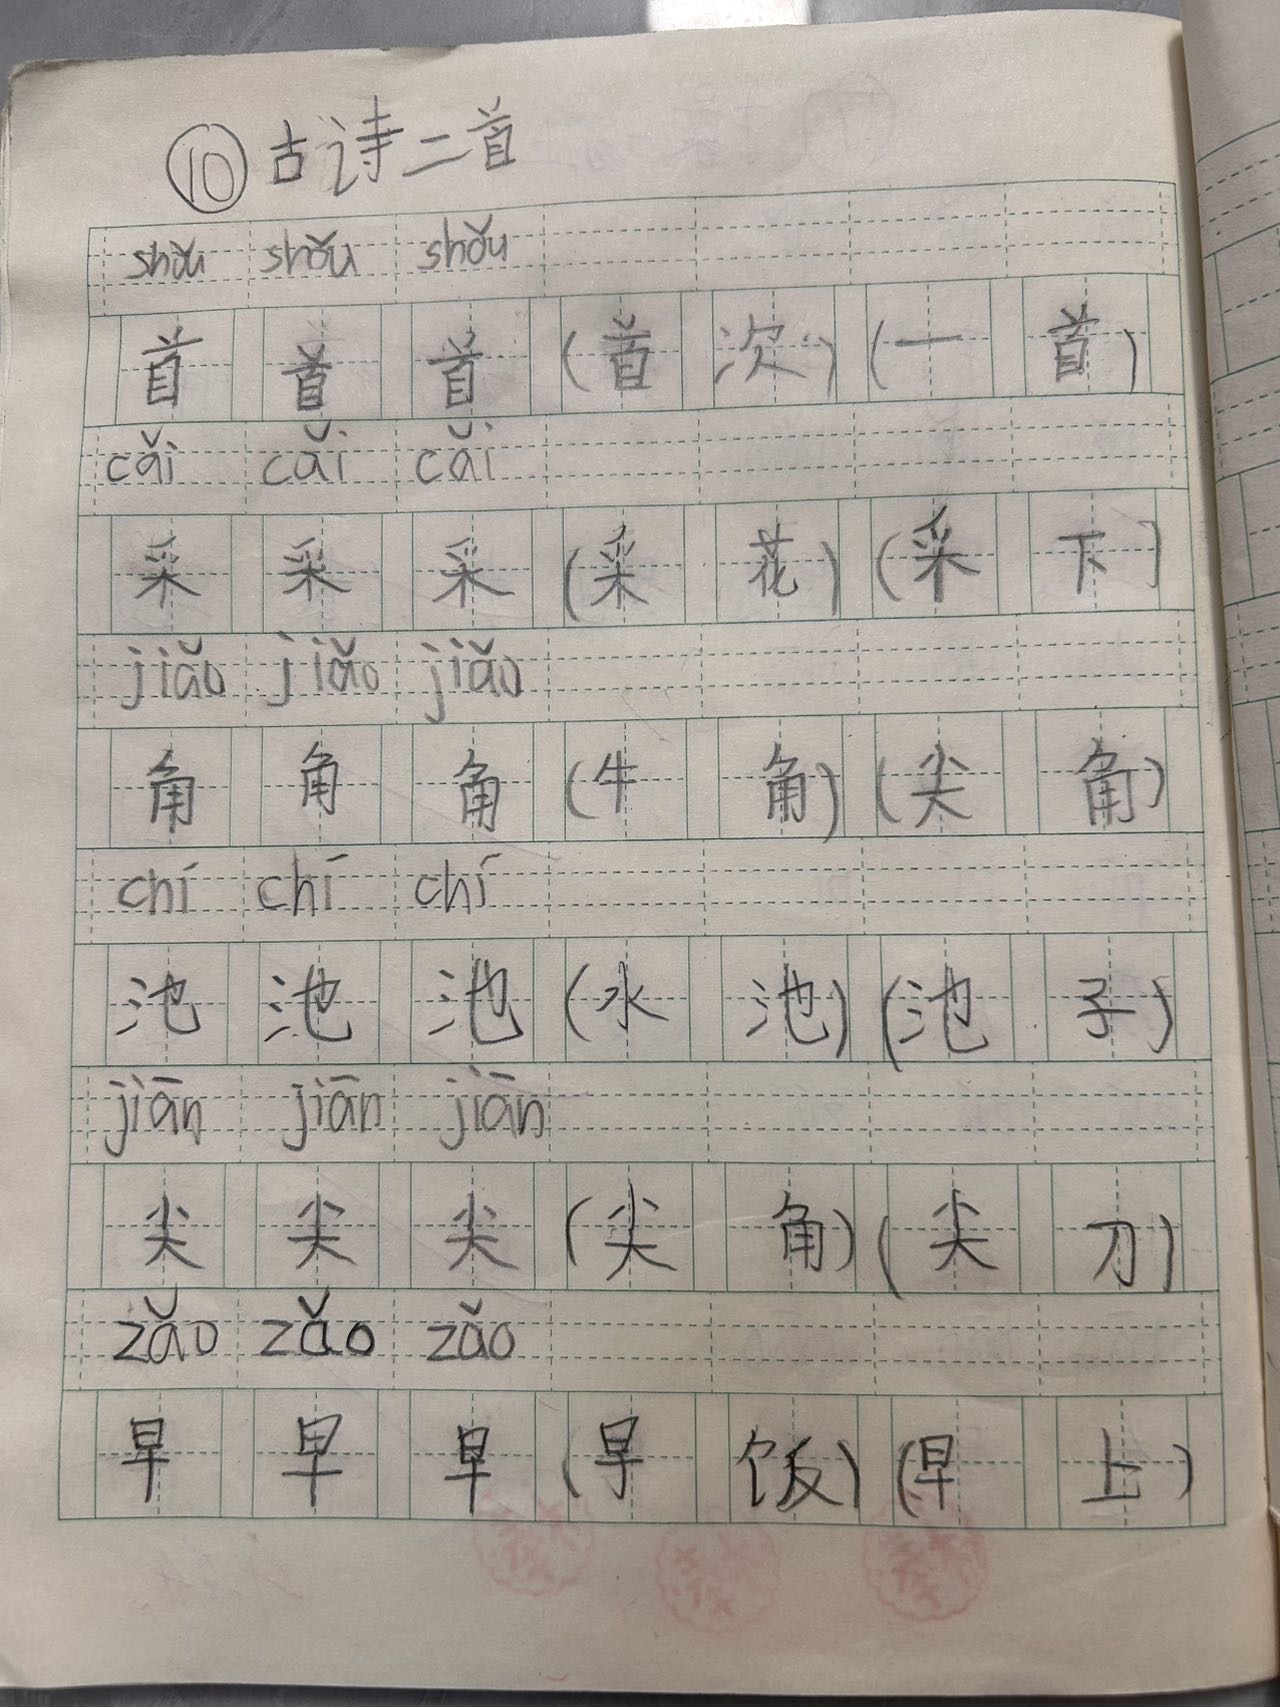 ⑩古诗二首
shǒu shǒu shǒu
首 首 首 (首次) (一首)
cǎi cǎi cǎi
采 采 采 (采花) (采下]
jiǎo jiǎo jiǎo
角 角 角 (牛角) (尖角)
chí chí chí
池 池 池 (水池) (池子)
jiān jiān jiān
尖 尖 尖 (尖角) (尖刀)
zǎo zǎo zǎo
早 早 早 (早饭) (早上)